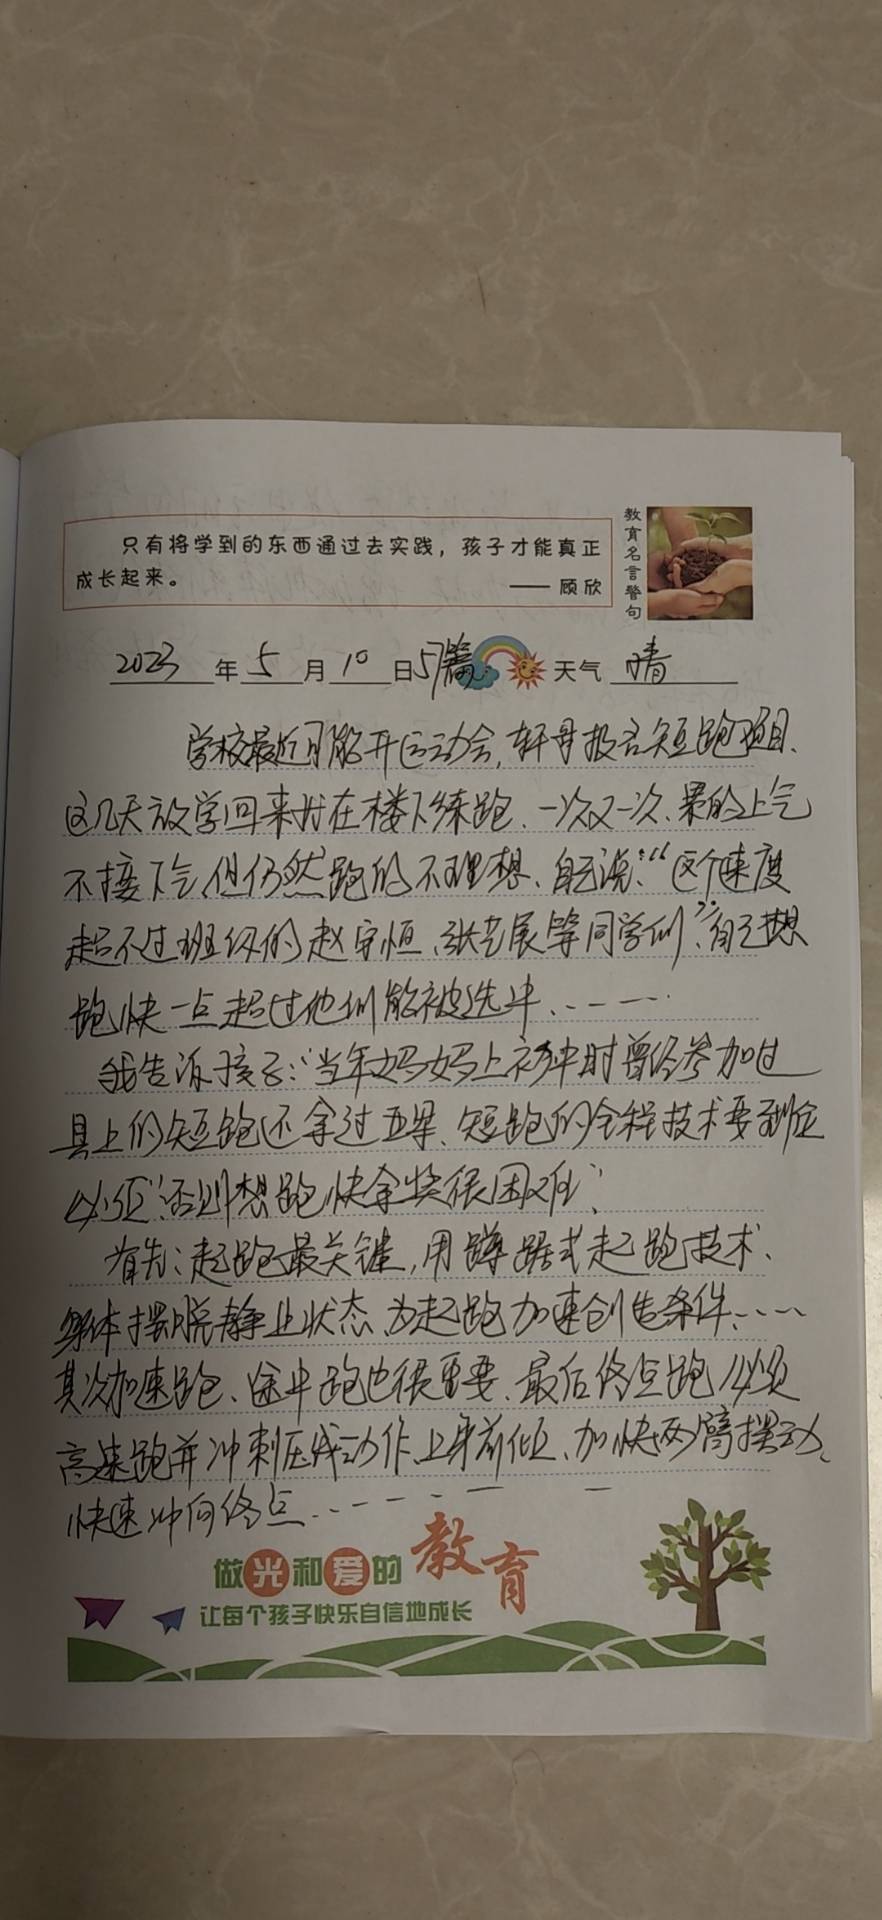 只有将学到的东西通过去实践，孩子才能真正
成长起来。
—— 顾欣
教育名言警句
2023年5月10日57篇 天气 晴
学校最近月能开运动会,轩哥报名短跑项目、
这几天放学回来好在楼下练跑、一次又一次、累的上气
不接下气、但仍然跑的不理想、自己说:“这个速度
超不过班级的赵宇恒、张艺展等同学们”、自己想
跑快一点超过他们能被选中、----
我告诉孩子:“当年妈妈上初中时曾经参加过
县上的短跑还拿过五奖、短跑的全程技术要到位
必须”否则想跑快拿奖很困难”
首先:起跑最关键,用蹲踞式起跑技术、
身体摆脱静止状态、为起跑加速创造条件、----
其次加速跑、途中跑也很重要、最后终点跑必须
高速跑并冲刺压线动作、上身前倾、加快两臂摆动、
快速冲向终点------
做光和爱的教育
让每个孩子快乐自信地成长